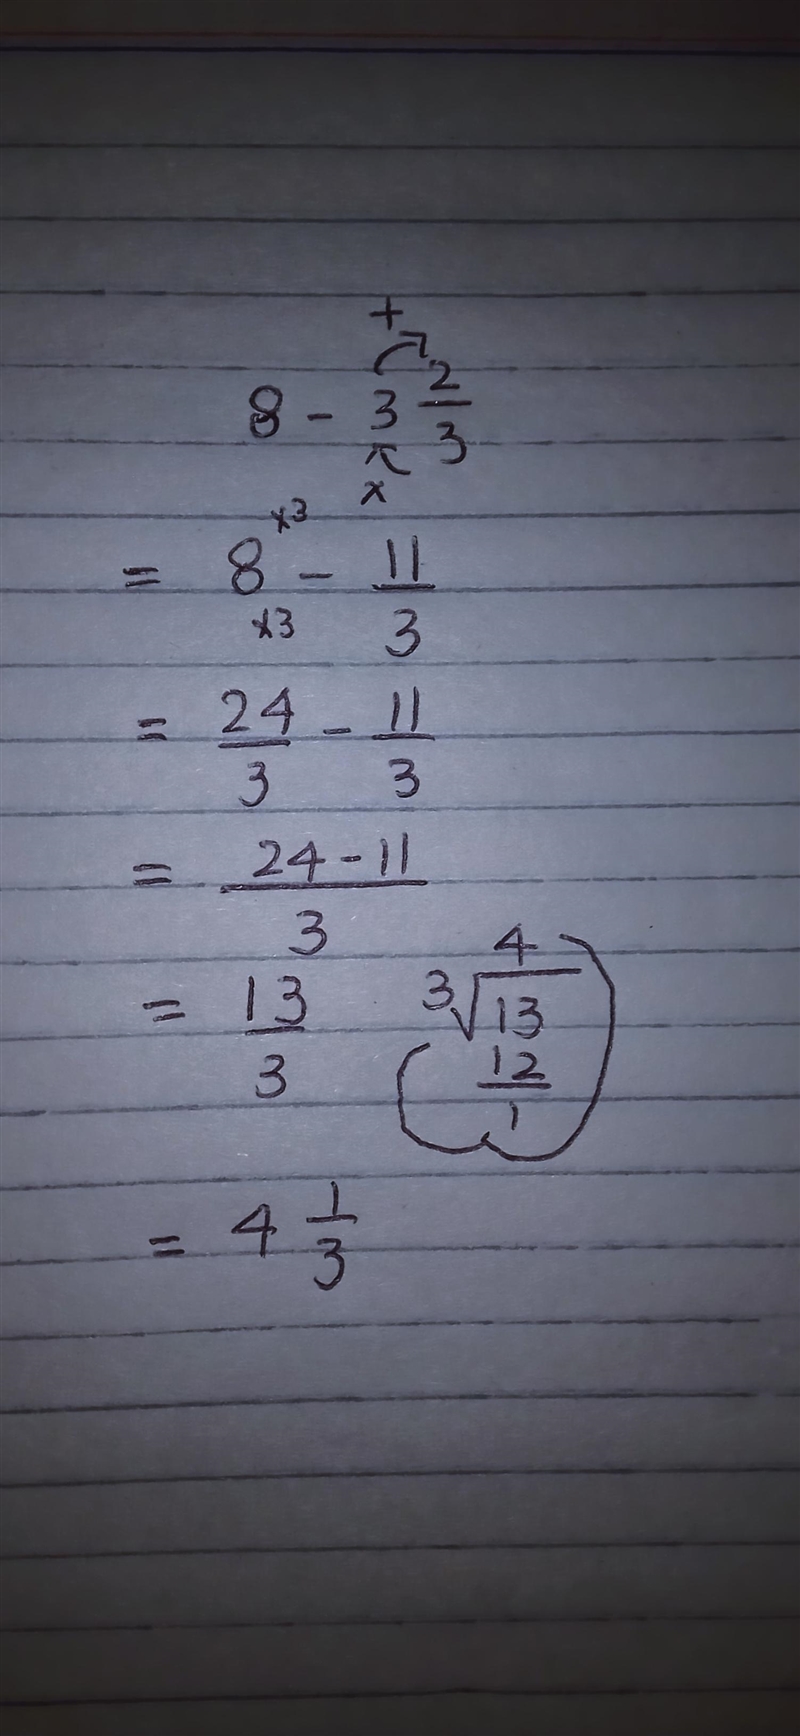 +
8 - 3 2/3
×
×3
= 8 - 11/3
×3
= 24/3 - 11/3
= 24 - 11/3
4
= 13/3 3√13
12
1
= 4 1/3